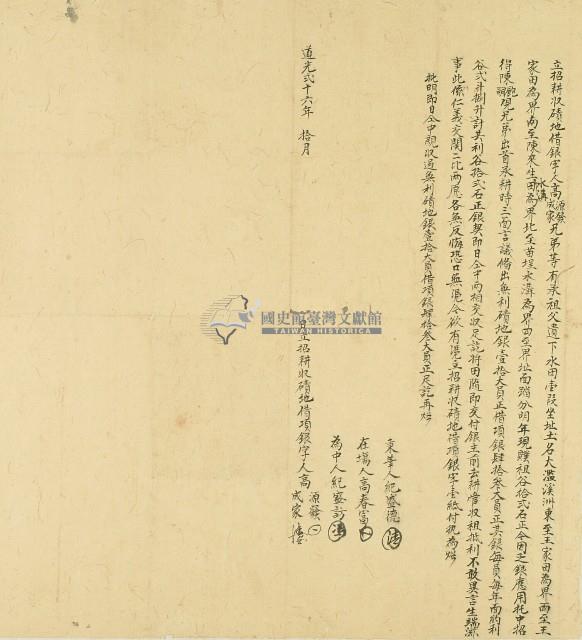 立招耕收磧地借銀字人高源發成家兄弟等有承祖父遺下水田壹段坐址土名大濫溪洲東至王家田為界西至王
家田為界南至陳來生田水溝為界北至苗埕水溝為界四至界址面踏分明年現贌租谷拾弍石正今因乏銀應用托中招
得陳 硯兄弟出首承耕時三面言議備出無利磧地銀壹拾大員正借項銀肆拾叁大員正其銀每員每年面約利
谷弍斗捌升計共利谷拾弍石正銀契即日仝中兩相交收足訖將田隨即交付銀主前去耕掌收租抵利不敢異言生端滋
事此係仁義交關二比兩愿各無反悔恐口無憑今欲有憑立招耕收磧地借項銀字壹紙付執為炤
批明即日仝中親收過無利磧地銀壹拾大員借項銀肆拾叁大員正足訖再炤
秉筆人紀盛德
在場人高春富
為中人紀
道光弍十六年 拾月 日立招耕收磧地借項銀字人高源發成家
國史館臺灣文獻館
TAIWAN HISTORICA